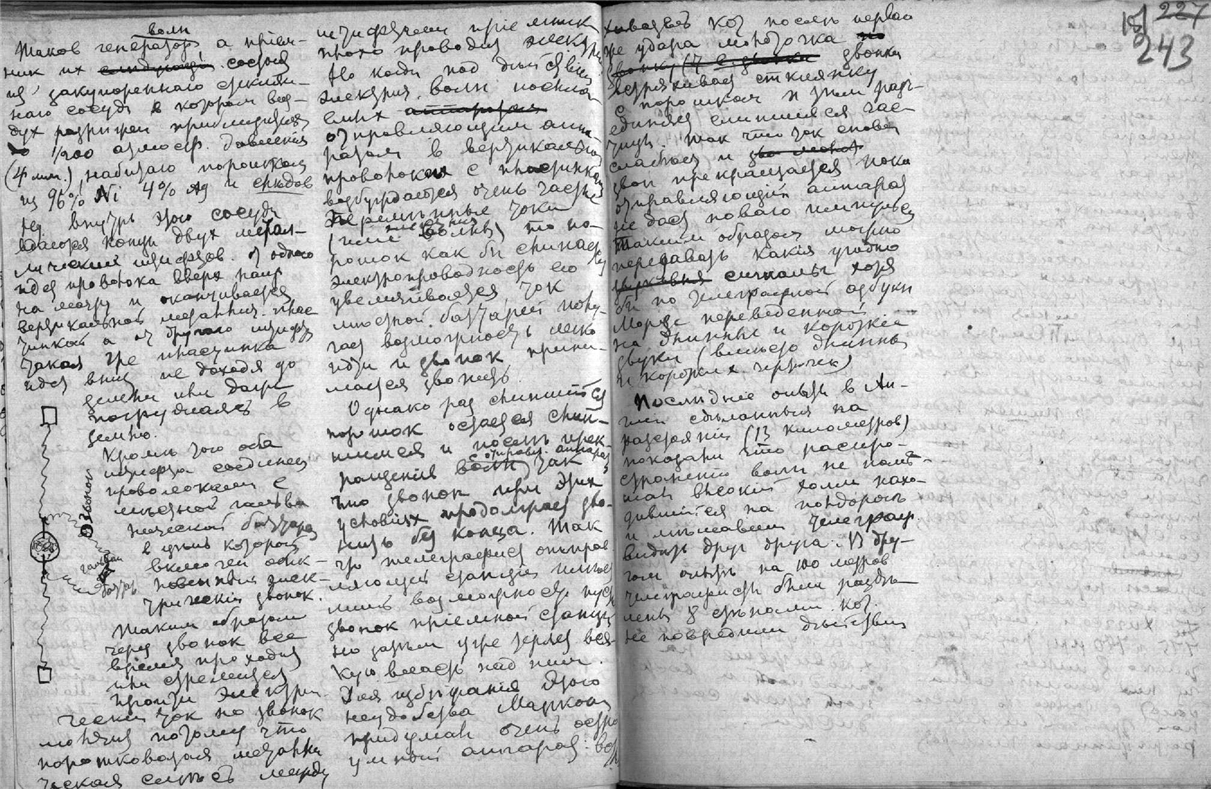 волн
Таков генератор, а прием-
ник их состоит
из закупореннаго стеклян-
наго сосуда в котором воз-
дух разрежен приблизительно
до 1/200 атмосф. давления
(4 мм.) набитаго порошком
из 96% Ni 4% Ag и следов
Hg. Внутрь этого сосуда
вдаются концы двух метал-
лических штифтов. От одного
идет проволока вверх напр.
на мачту и оканчивается
вертикальной металлич. плас-
тинкой а от другого штифта
такая же пластинка
идет вниз не доходя до
земли или даже
погружаясь в
землю.
Кроме того оба
штифта соединены
проволоками с
местной гальва-
нической батареей
в цепь которой
включен обык-
новенный элек-
трический звонок.
Таким образом
через звонок все
время проходит
или стремится
пройти электри-
ческий ток но звонок
молчит потому что
порошковатая металли-
ческая смесь между
звонок
гальван.
батарея
штифтами приемника
плохо проводит электр.
Но когда под действием
электрич. волн посыла-
емых
отправляющим аппа-
ратом в вертикальной
проволоке с пластинкой
возбуждаются очень частые
переменные токи
(или волны) то по-
рошок как бы слипается
электропроводность его
увеличивается ток
местной батареи полу-
чает возможность легко
идти и звонок прини-
мается звонить.
Однако раз слипшийся
порошок остается слип-
шимся и после прек-
ращения волн так
отправл. аппарат.
что звонок при этих
условиях продолжает зво-
нить без конца. Так
что телеграфист отправ-
ляющей станции имеет
лишь возможность пустить
звонок приемной станции
но затем уже теряет вся-
кую власть над ним.
Для избежания этого
неудобства Маркони
придумал очень остро-
умный аппарат:
227
243
кот. после перваго
же удара молоточка
звонка
встряхивает стклянку
с порошком и этим разъ-
единяет слипшияся час-
тицы. Так что ток снова
слабеет и
звон прекращается пока
отправляющий аппарат
не даст новаго импульса
Таким образом можно
передавать какия угодно
сигналы хотя
бы по телеграфной азбуке
Морзе переведенной
на длинные и короткие
звуки (вместо длинных
и коротких черточек)
Последние опыты в Ан-
глии сделанные на
разстоянии (13 километров)
показали что распро-
странению волн не поме-
шал высокий холм нахо-
дившийся на полдороге
и мешавший телеграф.
видеть друг друга. В дру-
гом опыте на 100 метров
телеграфисты были разде-
лены 8 стенами кот.
не повредили действию